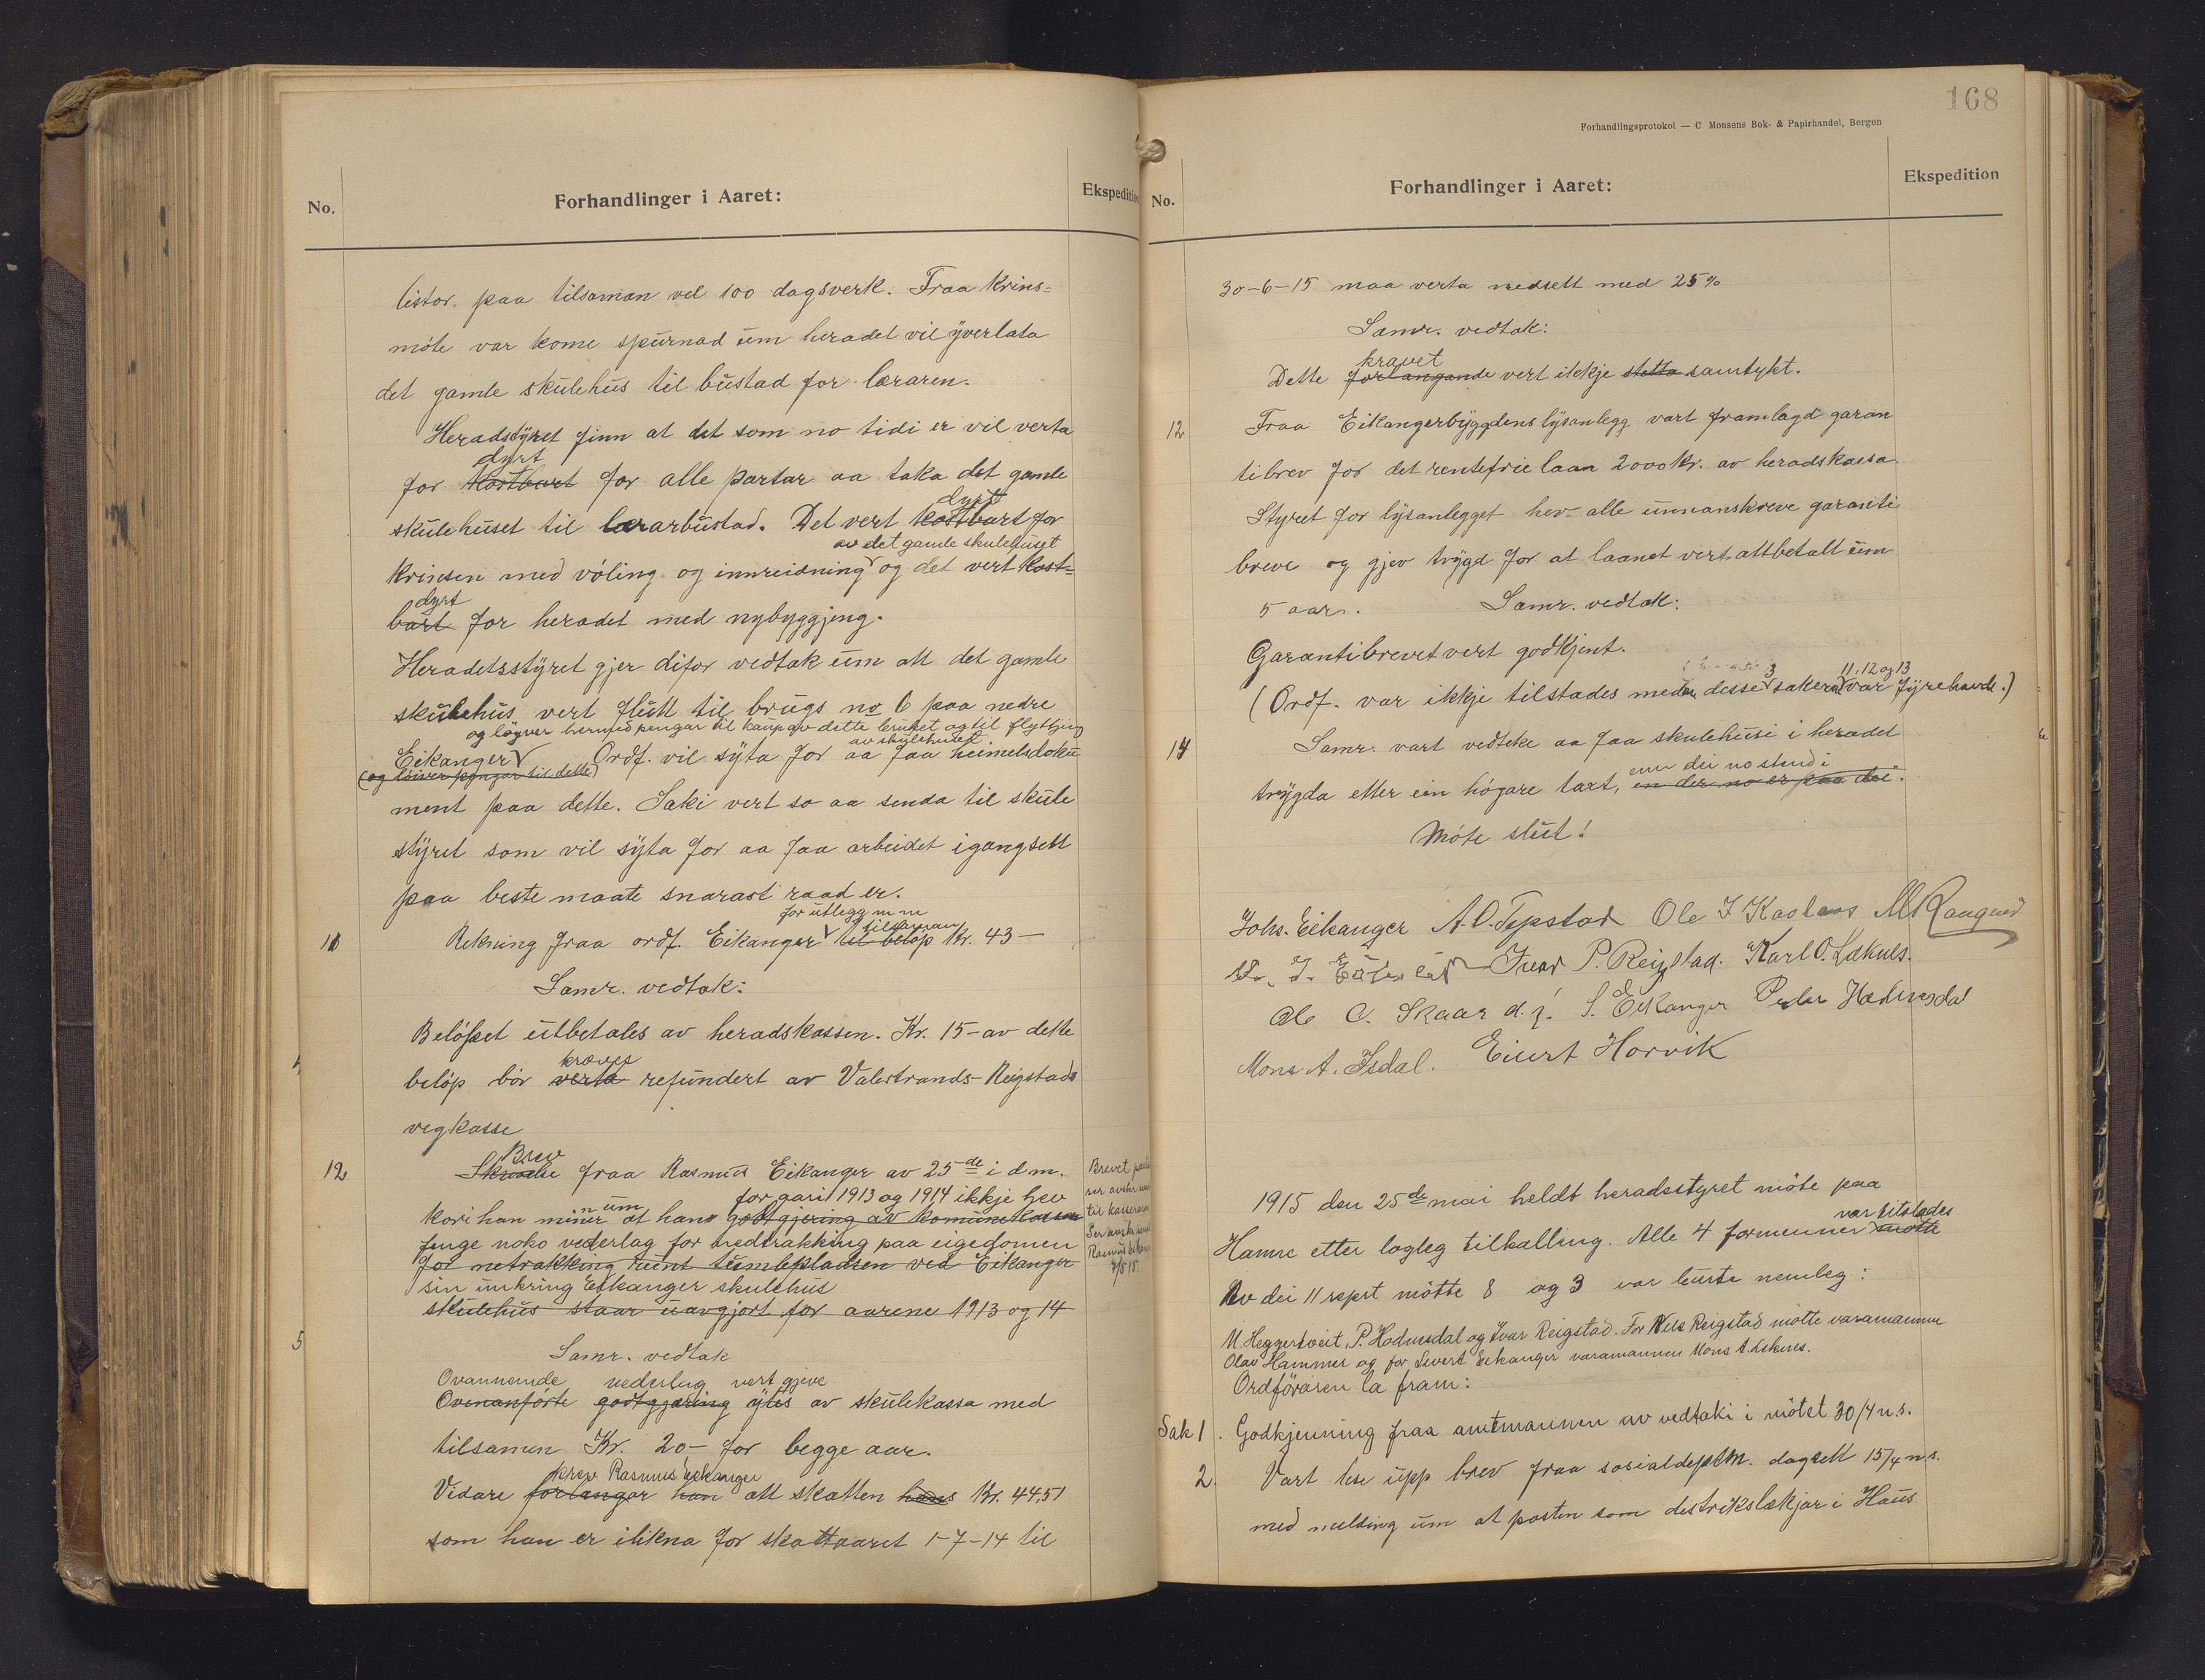 No.
Forhandlinger i Aaret:
Ekspedition
listor. paa tilsaman vel 100 dagsverk. Fraa Krins=
møte var kome spurnad um heradet vil yverlata
det gamle skulehus til bustad for læraren.
Heradstyret finn at det som no tidi er vil verta
dyrt
for kostbart for alle partar aa taka det gamle
dyrt
skulehuset til lærarbustad. Det vert kostbart for
av det gamle skulehuset
krinsen med vøling og innreidning og det vert kost=
dyrt
bart for heradet med nybyggjing.
Heradetsstyret gjer difor vedtak um att det gamle
skulehus vert flutt til brugs no 6 paa nedre
og løyver hermed pengar til kaup av dette bruket og til flyttjing
av skulehuset
Eikanger Ordf. vil syta for aa faa heimelsdoku
(og løiver pengar til dette)
ment paa dette. Saki vert so aa senda til skule
styret som vil syta for aa faa arbeidet igangsett
paa beste maate snarast raad er.
for utlegg m m
tilsaman
11 Rekning fraa ordf. Eikanger til beløp Kr. 43 —
Samr. vedtak:
Beløpet utbetales av heradskassen. Kr. 15 - av dette
kræves
beløp bør verta refundert av Valestrands-Reigstads
vegkasse
Brev
12 Skrivelse fraa Rasmus Eikanger av 25de i d.m.
n um for aari 1913 og 1914 ikkje hev
kori han miner at hans godtgjering av komunekassen
fenge noko vederlag for nedtrakking paa eigedomen
for netrakking rundt tumlepladsen ved Eikanger
sin umkring Eikanger skulehus
skulehus staar uavgjort for aarene 1913 og 14
Brevet
til kasseraren
Rasmus
7/5 15.
5
Samr. vedtak
Ovannemde vederlag vert gjeve
Ovenanførte godtgjøring ytes av skulekassa med
tilsamen Kr. 20 - for begge aar.
krev Rasmus Eikanger
Vidare forlangar han att skatten hans Kr. 44.51
som han er ilikna for skattaaret 1-7-14 til
168
Forhandlingsprotokol — C. Monsens Bok- & Papirhandel, Bergen
No.
Forhandlinger i Aaret:
Ekspedition
30-6-15 maa verta nedsett med 25%
Samr. vedtak:
kravet
Dette forlangande vert ikkje stetta samtykt.
12 Fraa Eikangerbygdens lysanlegg vart framlagd garan
tibrev for det rentefrie laan 2000 kr. av heradskassa.
Styret for lysanlegget hev alle unnanskreve garanti
breve og gjev trygd for at laanet vert attbetalt um
5 aar. Samr. vedtak:
Garantibrevet vert godkjent.
3 11. 12 og 13
(Ordf. var ikkje tilstades medan desse sakerne var fyrehavde.)
14 Samr. vart vedteke aa faa skulehusi i heradet
enn dei no stend i
trygda etter ein høgare tart, en der no er paa dei.
Møte slut!
Johs. Eikanger A. O. Tepstad Ole I Kaolaas
Ivar P. Reigstad. Karl O. Løknes.
Ole C. Skaar d.y. S. Eikanger Peder Hodnesdal
Mons A. Isdal. Eivert Horvik
1915 den 25de mai heldt heradsstyret møte paa
var tilstades
Hamre etter logleg tilkalling. Alle 4 formenner møtte
Av dei 11 repst møtte 8 og 3 var burte nemleg:
N. Heggertveit, P. Hodnesdal og Ivar Reigstad. For Nils Reigstad møtte varamannen
Olav Hammer og for Severt Eikanger varamannen Mons A. Eiknes.
Ordføraren la fram:
Sak 1. Godkjenning fraa amtmannen av vedtaki i møtet 30/4 n.s.
2. Vart lese upp brev fraa sosialdeptm. dagsett 15/4 n.s.
med melding um at posten som distrikslækjar i Haus